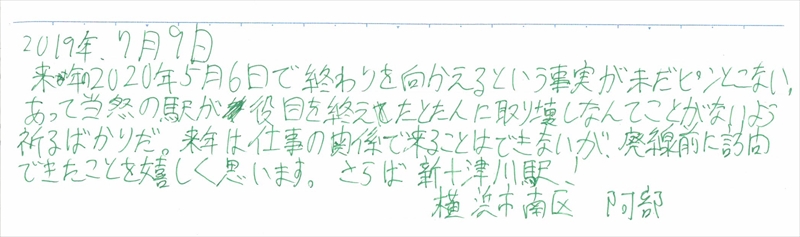 2019年.7月9日
来年の2020年5月6日で終わりを向かえるという事実が未だピンとこない。
あって当然の駅が役目を終えたとたんに取り壊しなんてことがないよう
祈るばかりだ。来年は仕事の関係で来ることはできないが、廃線前に訪問
できたことを嬉しく思います。さらば新十津川駅!
横浜市南区 阿部